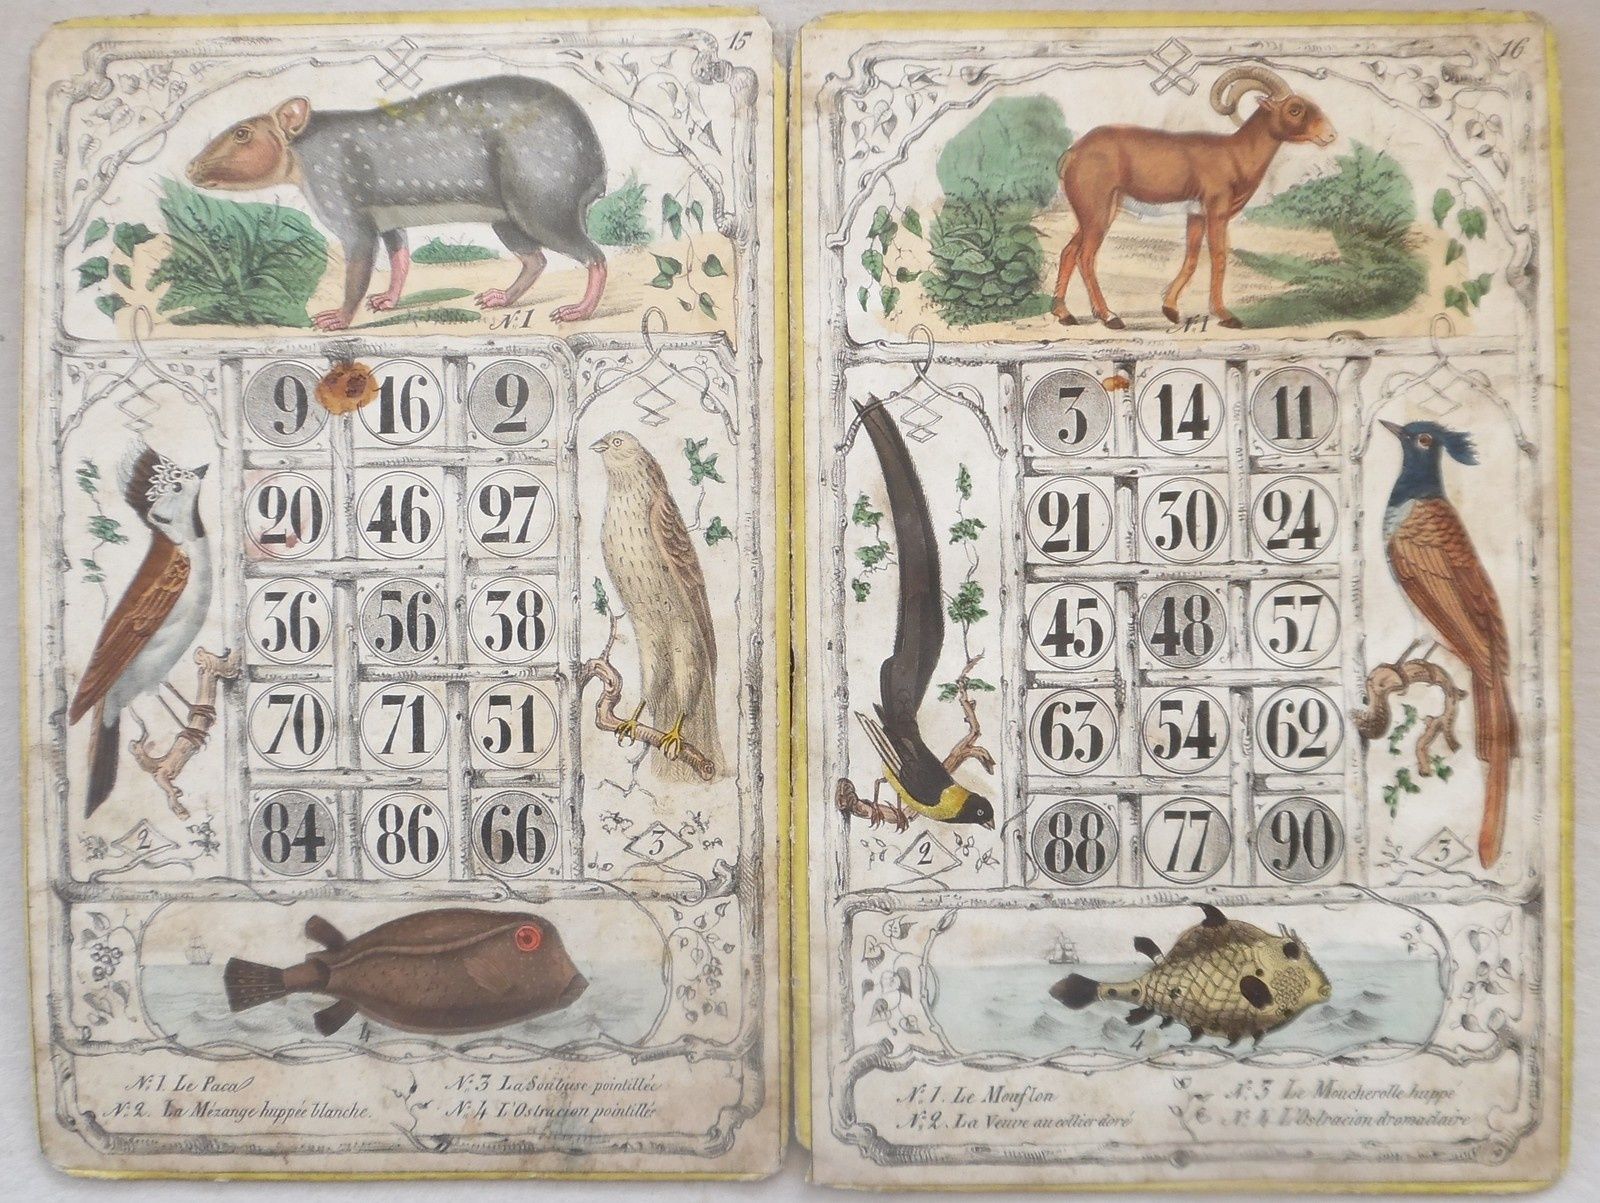 15
N.º 1
9 16 2
20 46 27
36 56 38
70 71 51
84 86 66
2
3
4
N.º 1. Le Paca
N.º 2. La Mézange huppée blanche.
N.º 3 La pointillée
N.º 4 L'Ostracion pointillée
16
N.º 1
3 14 11
21 30 24
45 48 57
63 54 62
88 77 90
2
3
4
N.º 1. Le Mouflon
N.º 2. La Veuve au collier doré
N.º 3 Le Moucherolle huppé
N.º 4 L'Ostracion dromadaire